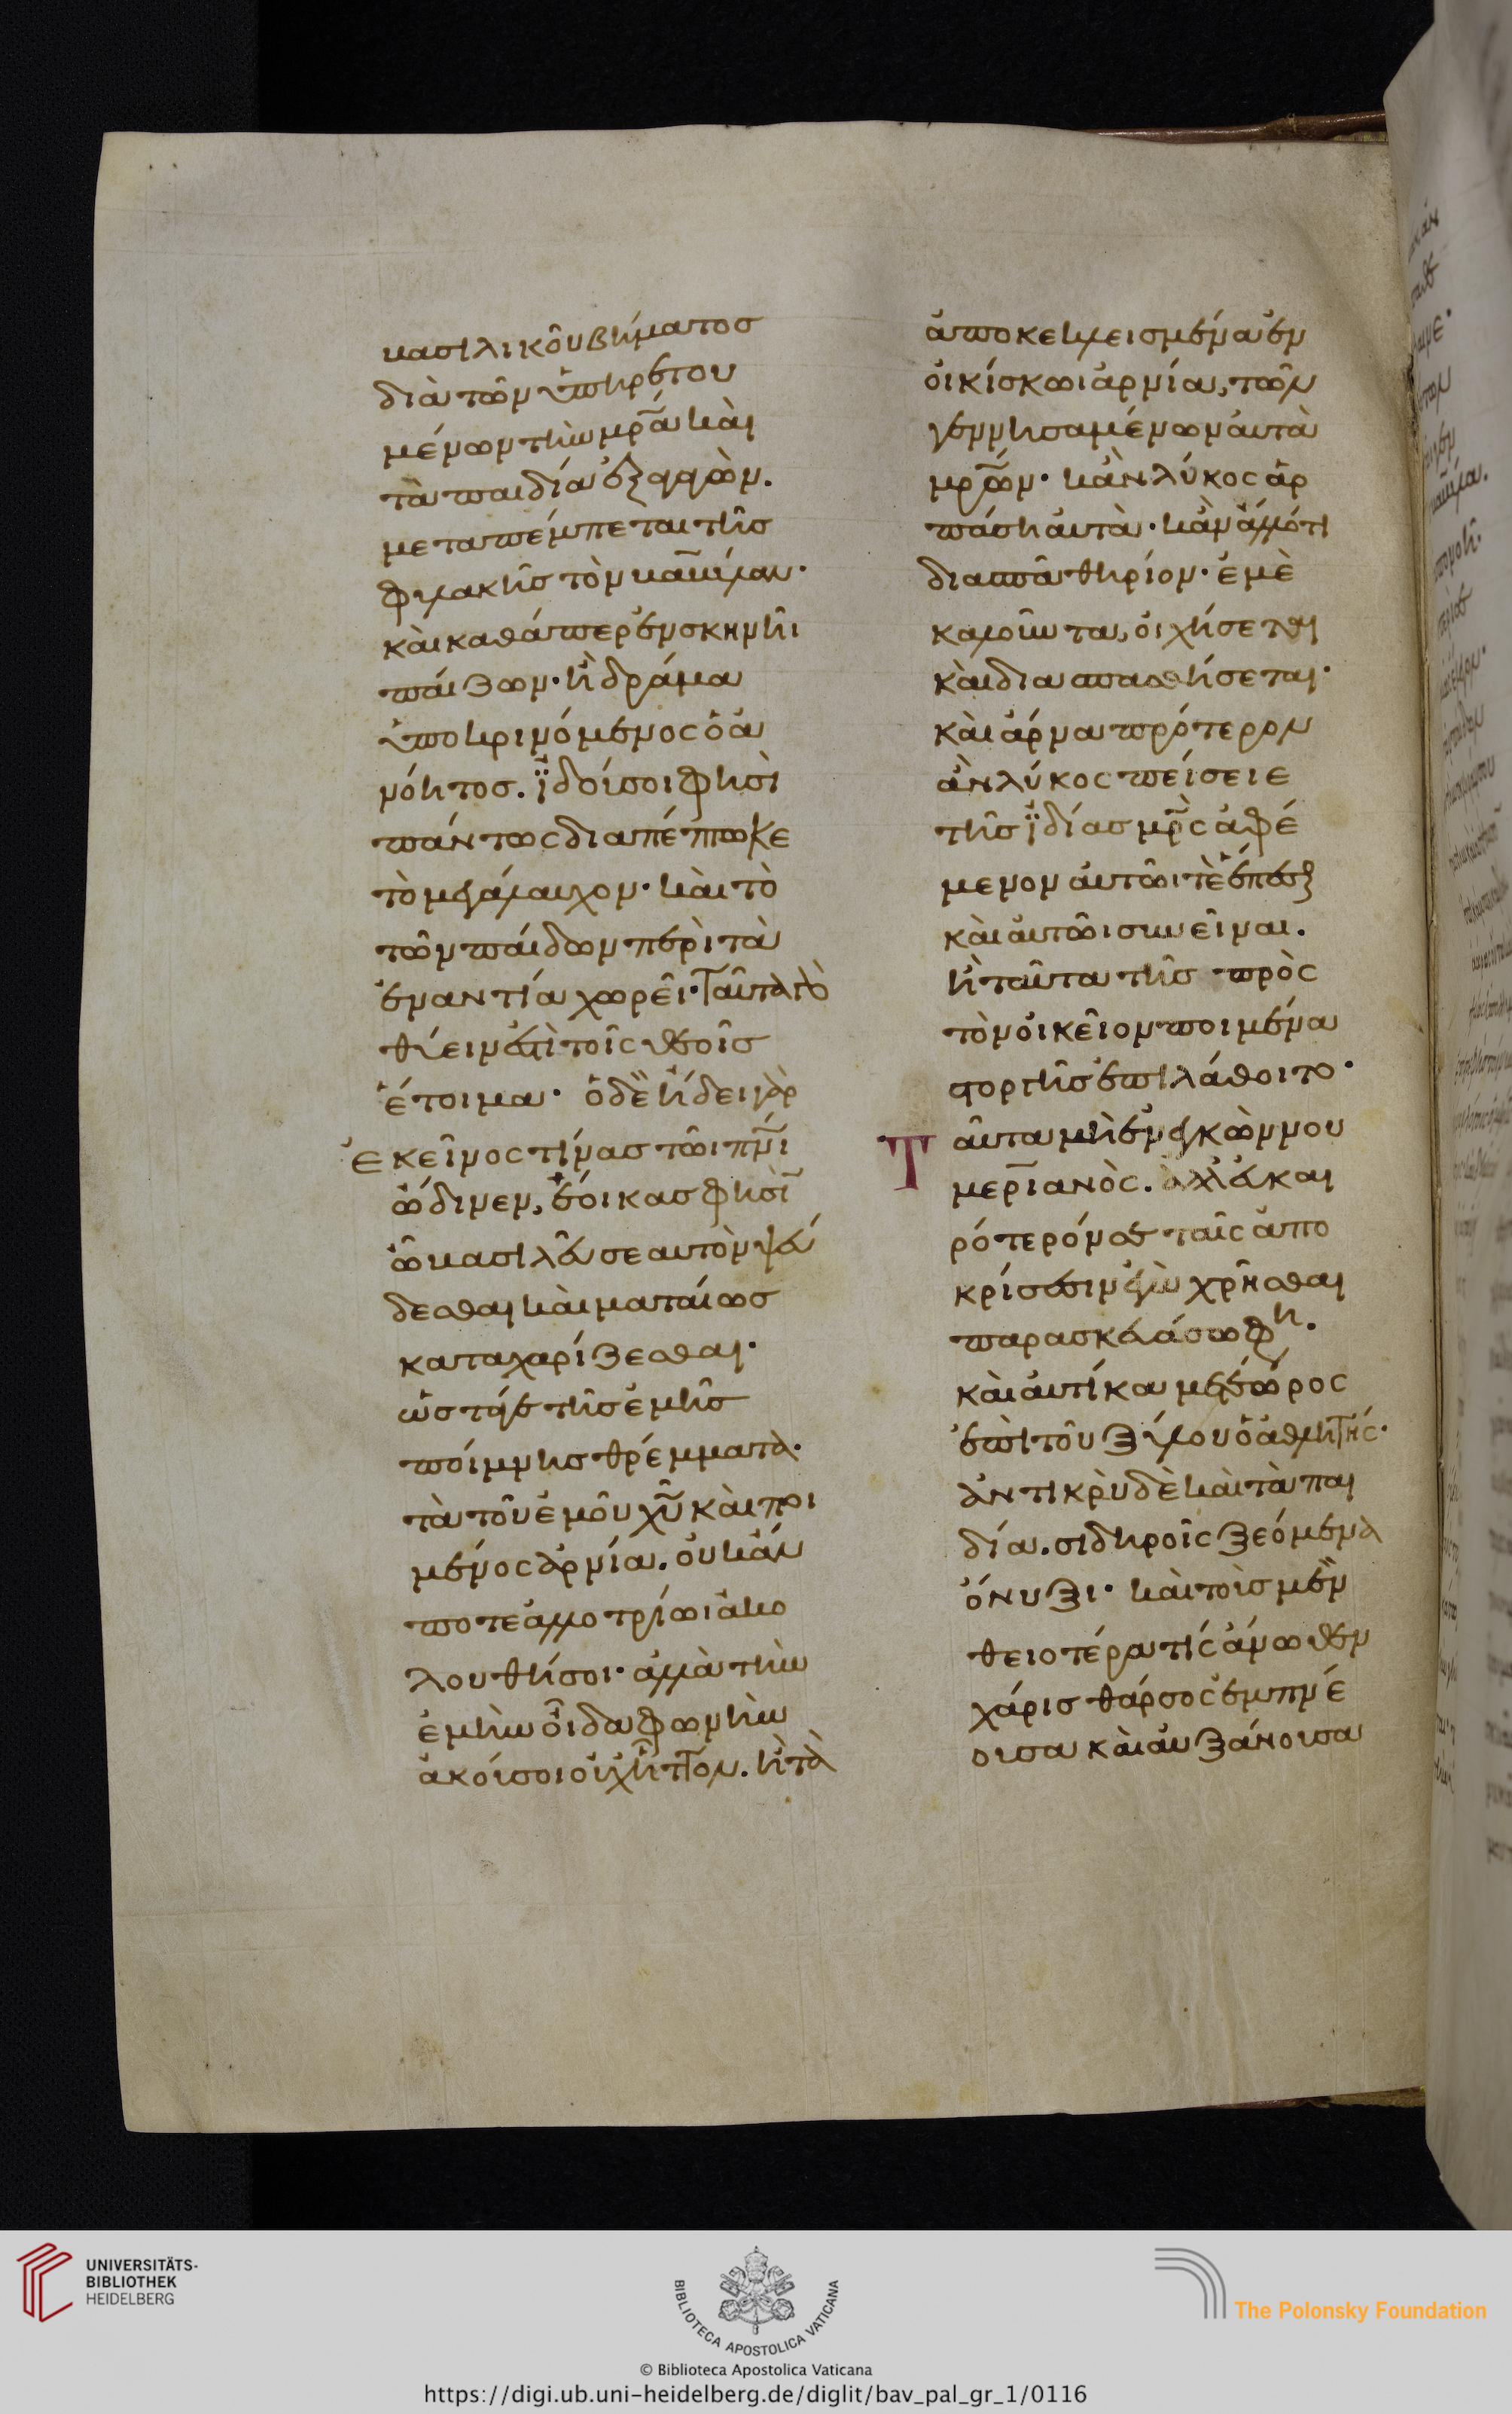 βασιλικοῦ βήματος
διὰ τῶν ὑπηρετου
μένων τὴν μρ̅α καὶ
τὰ παιδία
μεταπέμπεται τῆς
φυλακῆς τὸν βαβύλαν·
καὶ καθάπερ ἐν σκηνῆι
παίζων· ἢ δράμα
ὑποκρινόμενος ὁ ἀ
νόητος. ἰδού σοι φησὶ
πάντως διαπέπτωκε
τὸ μεγάλαυχον· καὶ τὸ
τῶν παίδων περὶ τὰ
ἐναντία χωρεῖ· ταῦτα τὸ
θύειν ἐπὶ τοῖς θεοῖς
ἕτοιμα· ὁ δὲ ἤδει γὰρ
ἐκεῖνος τίνας τῶι πν̅ι
ὤδινεν, ἔοικας φησὶ̅
ὦ βασιλεῦ σεαυτὸν ψεύ
δεσθαι καὶ ματαίως
καταχαρίζεσθαι·
ὥστε γε τῆς ἐμῆς
ποίμνης θρέμματα·
τὰ τοῦ ἐμοῦ χ̅υ καὶ ποι
μένος ἀρνία. οὐκ ἄν
ποτε ἀλλοτρίωι ἀκο
λουθήσοι· ἀλλὰ τὴν
ἐμὴν οἶδα φωνὴν
ἀκούσοι οὐχ ἧττον. ἢ τὰ
ἀποκεκλεισμένα ἐν
οἰκίσκωι ἀρνία, τῶν
γεννησαμένων αὐτὰ
μρ̅ων· κἂν λύκος ἁρ
πάση αὐτὰ· κἂν ἄλλό τι
διασπᾶ θηρίον· ἐμὲ
καλοῦντα, οἰχήσεται
καὶ διασπασθήσεται·
καὶ ἄρνα πρότερον
ἂν λύκος πείσειε
τῆς ἰδίας μρ̅ς ἀφέ
μενον αὐτῶι τὲ ἕπεσθαι
καὶ αὐτῶι συνεῖναι.
ἢ ταῦτα τῆς πρὸς
τὸν οἰκεῖον ποιμένα
στοργῆς ἐπιλάθοιτο·
Ταῦτα μὴ ἐνεγκὼν νου
μεριανὸς. ἀλλὰ και
ρότερόν σε ταῖς ἀπο
κρίσεσιν ἐγὼ χρῆσθαι
παρασκευάσω φη·
καὶ αὐτίκα μετέωρος
ἐπὶ τοῦ ξύλου ὁ ἀθλητής·
ἀντικρὺ δὲ καὶ τὰ παι
δία. σιδηροῖς ξεόμενα
ὄνυξι· καὶ τοῖς μὲν
θειοτέρα τίς ἄνωθεν
χάρις θάρσος ἐμπνέ
ουσα καὶ αὐξάνουσα
UNIVERSITÄTS-
BIBLIOTHEK
HEIDELBERG
BIBLIOTECA APOSTOLICA VATICANA
The Polonsky Foundation
© Biblioteca Apostolica Vaticana
https://digi.ub.uni-heidelberg.de/diglit/bav_pal_gr_1/0116